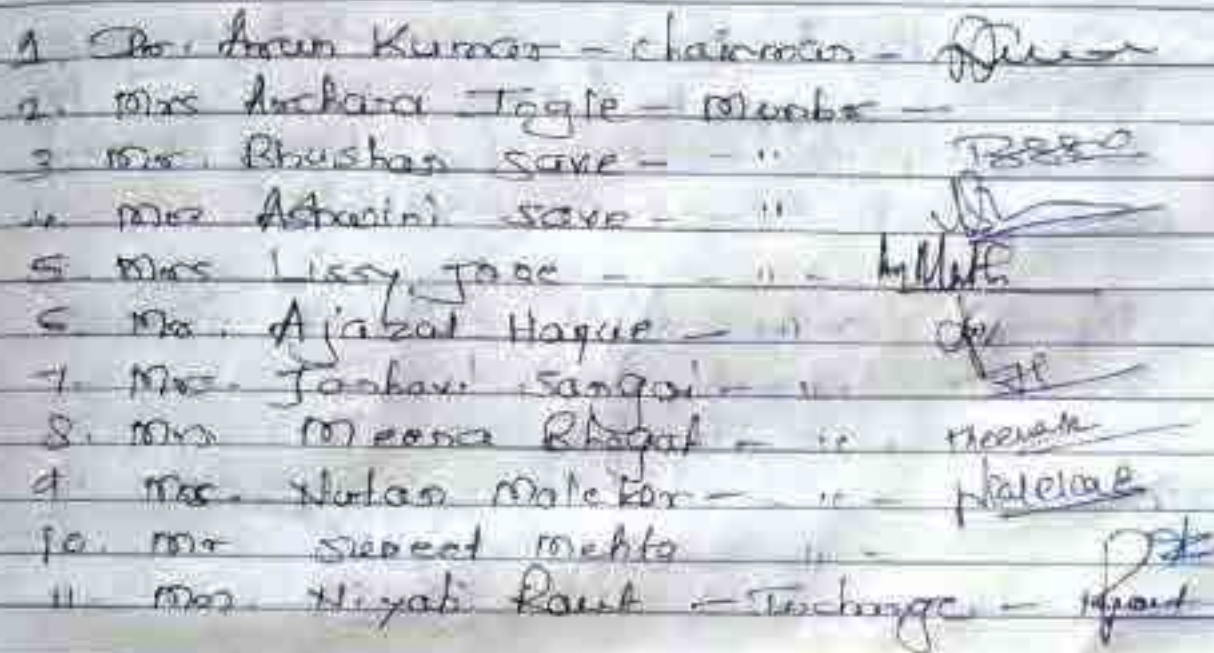 1 Dr. Arun Kumar - Chairman -
2. Mrs Archana Jogle - Member -
3. Mr. Bhushan Save - "
4. Mrs Ashwini Save - "
5. Mrs Lissy Jose - " -
6. Mr. Ajabzal Haque - "
7. Mrs. Janhavi Sangoi - "
8. Mrs Meena Bhagat - " -
9. Mrs. Nutan Malekar - " -
10. Mr Mehta " -
11. Mrs. Niyati Raut - Incharge -